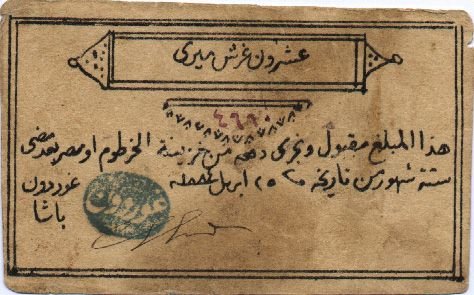 عشرون غرش ميرى
هذا المبلغ مقبول وتجرى دفعه من خزينة الخرطوم او مصر بعد مضى
ستة شهور من تاريخه ٢٥ ابريل ١٨٨٤ غوردون
باشا